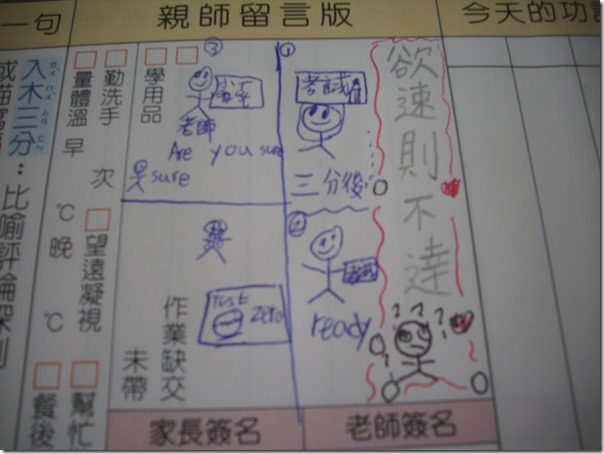 今天的功
親師留言版
一句
欲速則不達
???
①
三分後
②
ready
③
老師
Are you sure
sure
Test
zero
學用品
作業缺交
未帶
勤洗手
次
望遠凝視
幫忙
量體溫
早
℃
晚
℃
餐後
入木三分：比喻評論深刻
家長簽名
老師簽名